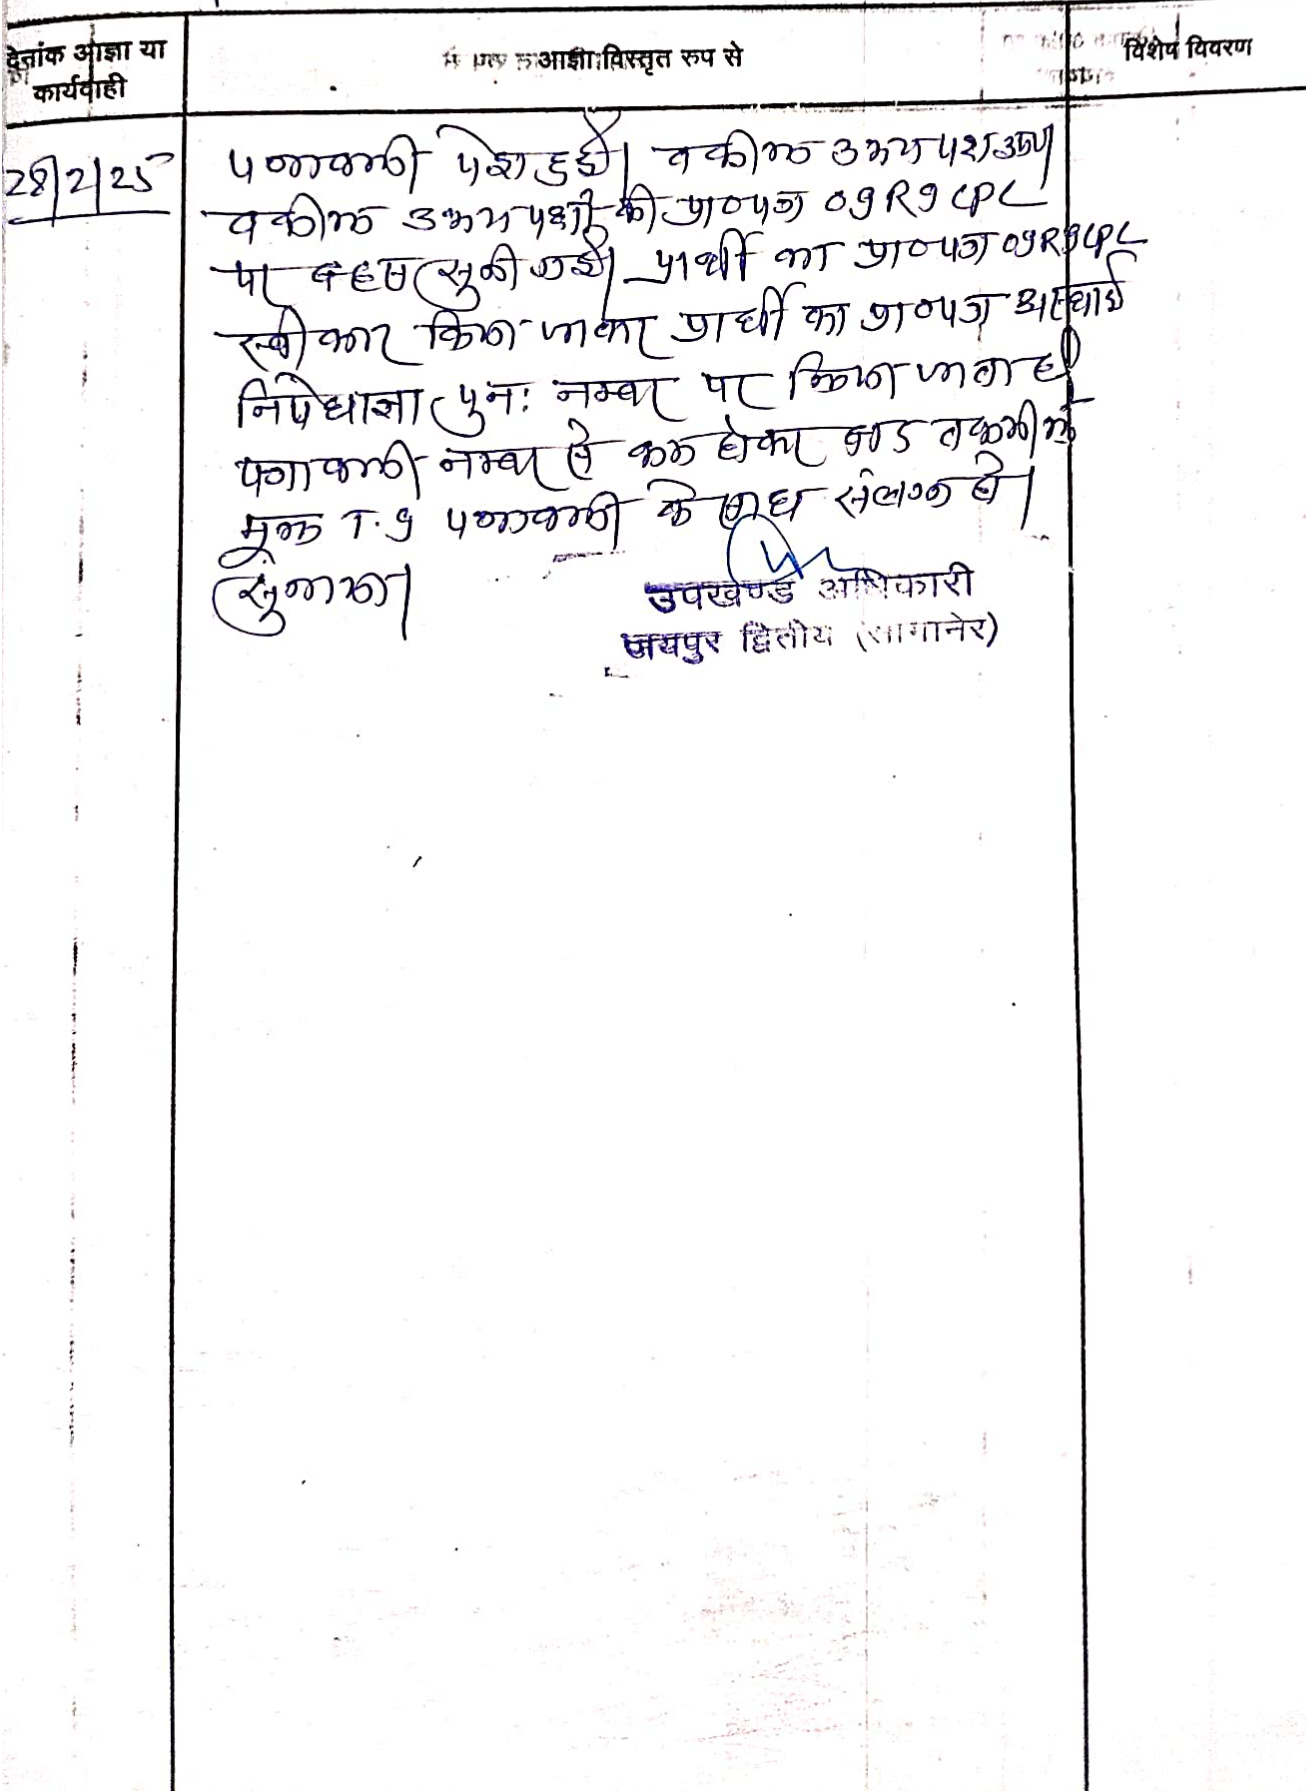 दिनांक आज्ञा या
कार्यवाही
आज्ञा विस्तृत रूप से
विशेष विवरण
28/2/25
पत्रावली पेश हुई। वकील उभय पक्ष उप0।
वकील उभय पक्षों की प्रा0पत्र O9R9 CPC
पर बहस सुनी गई। प्रार्थी का प्रा0पत्र O9R9 CPC
स्वीकार किया जाकर प्रार्थी का प्रा0पत्र अस्थाई
निषेधाज्ञा पुनः नम्बर पर लिया जाता है
पत्रावली नम्बर से कम होकर बाद तकमील
मूल T.I पत्रावली के साथ संलग्न हो।
सुनाया।
उपखण्ड अधिकारी
जयपुर द्वितीय (सांगानेर)